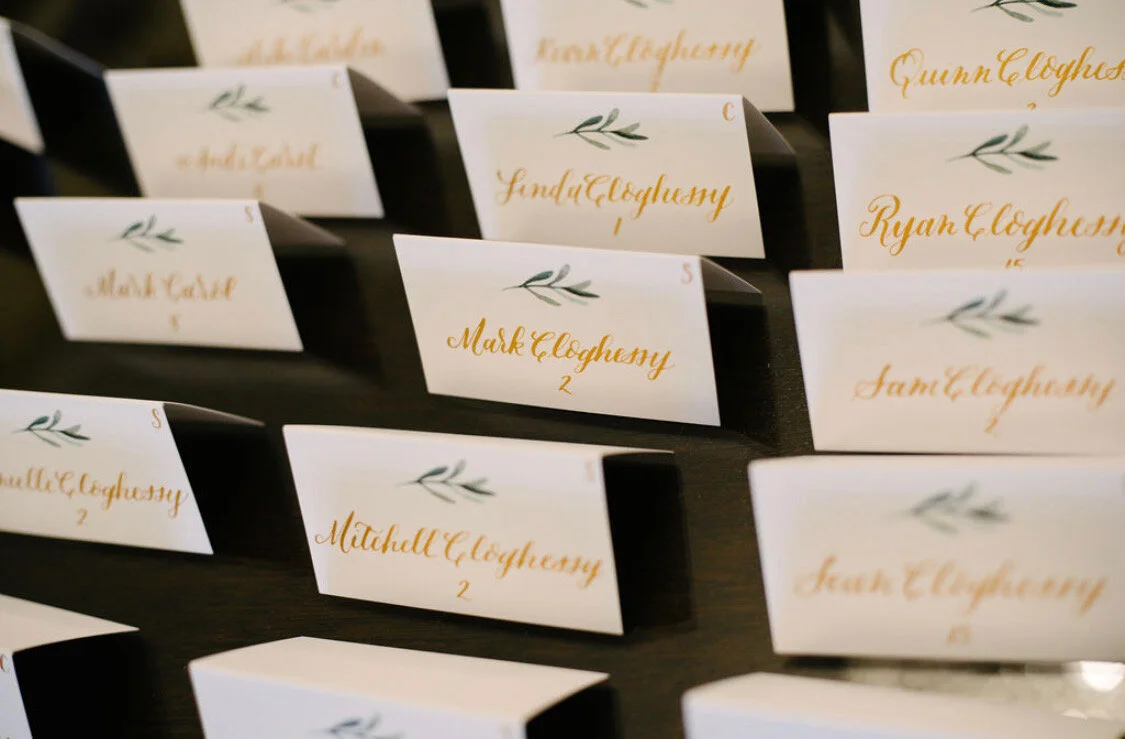 Cloghessy
Quinn Cloghes
C
Linda Cloghessy
1
Ryan Cloghessy
15
S
Mark Carol
S
Mark Cloghessy
2
Sam Cloghessy
2
S
Cloghessy
2
Mitchell Cloghessy
2
Sean Cloghessy
15